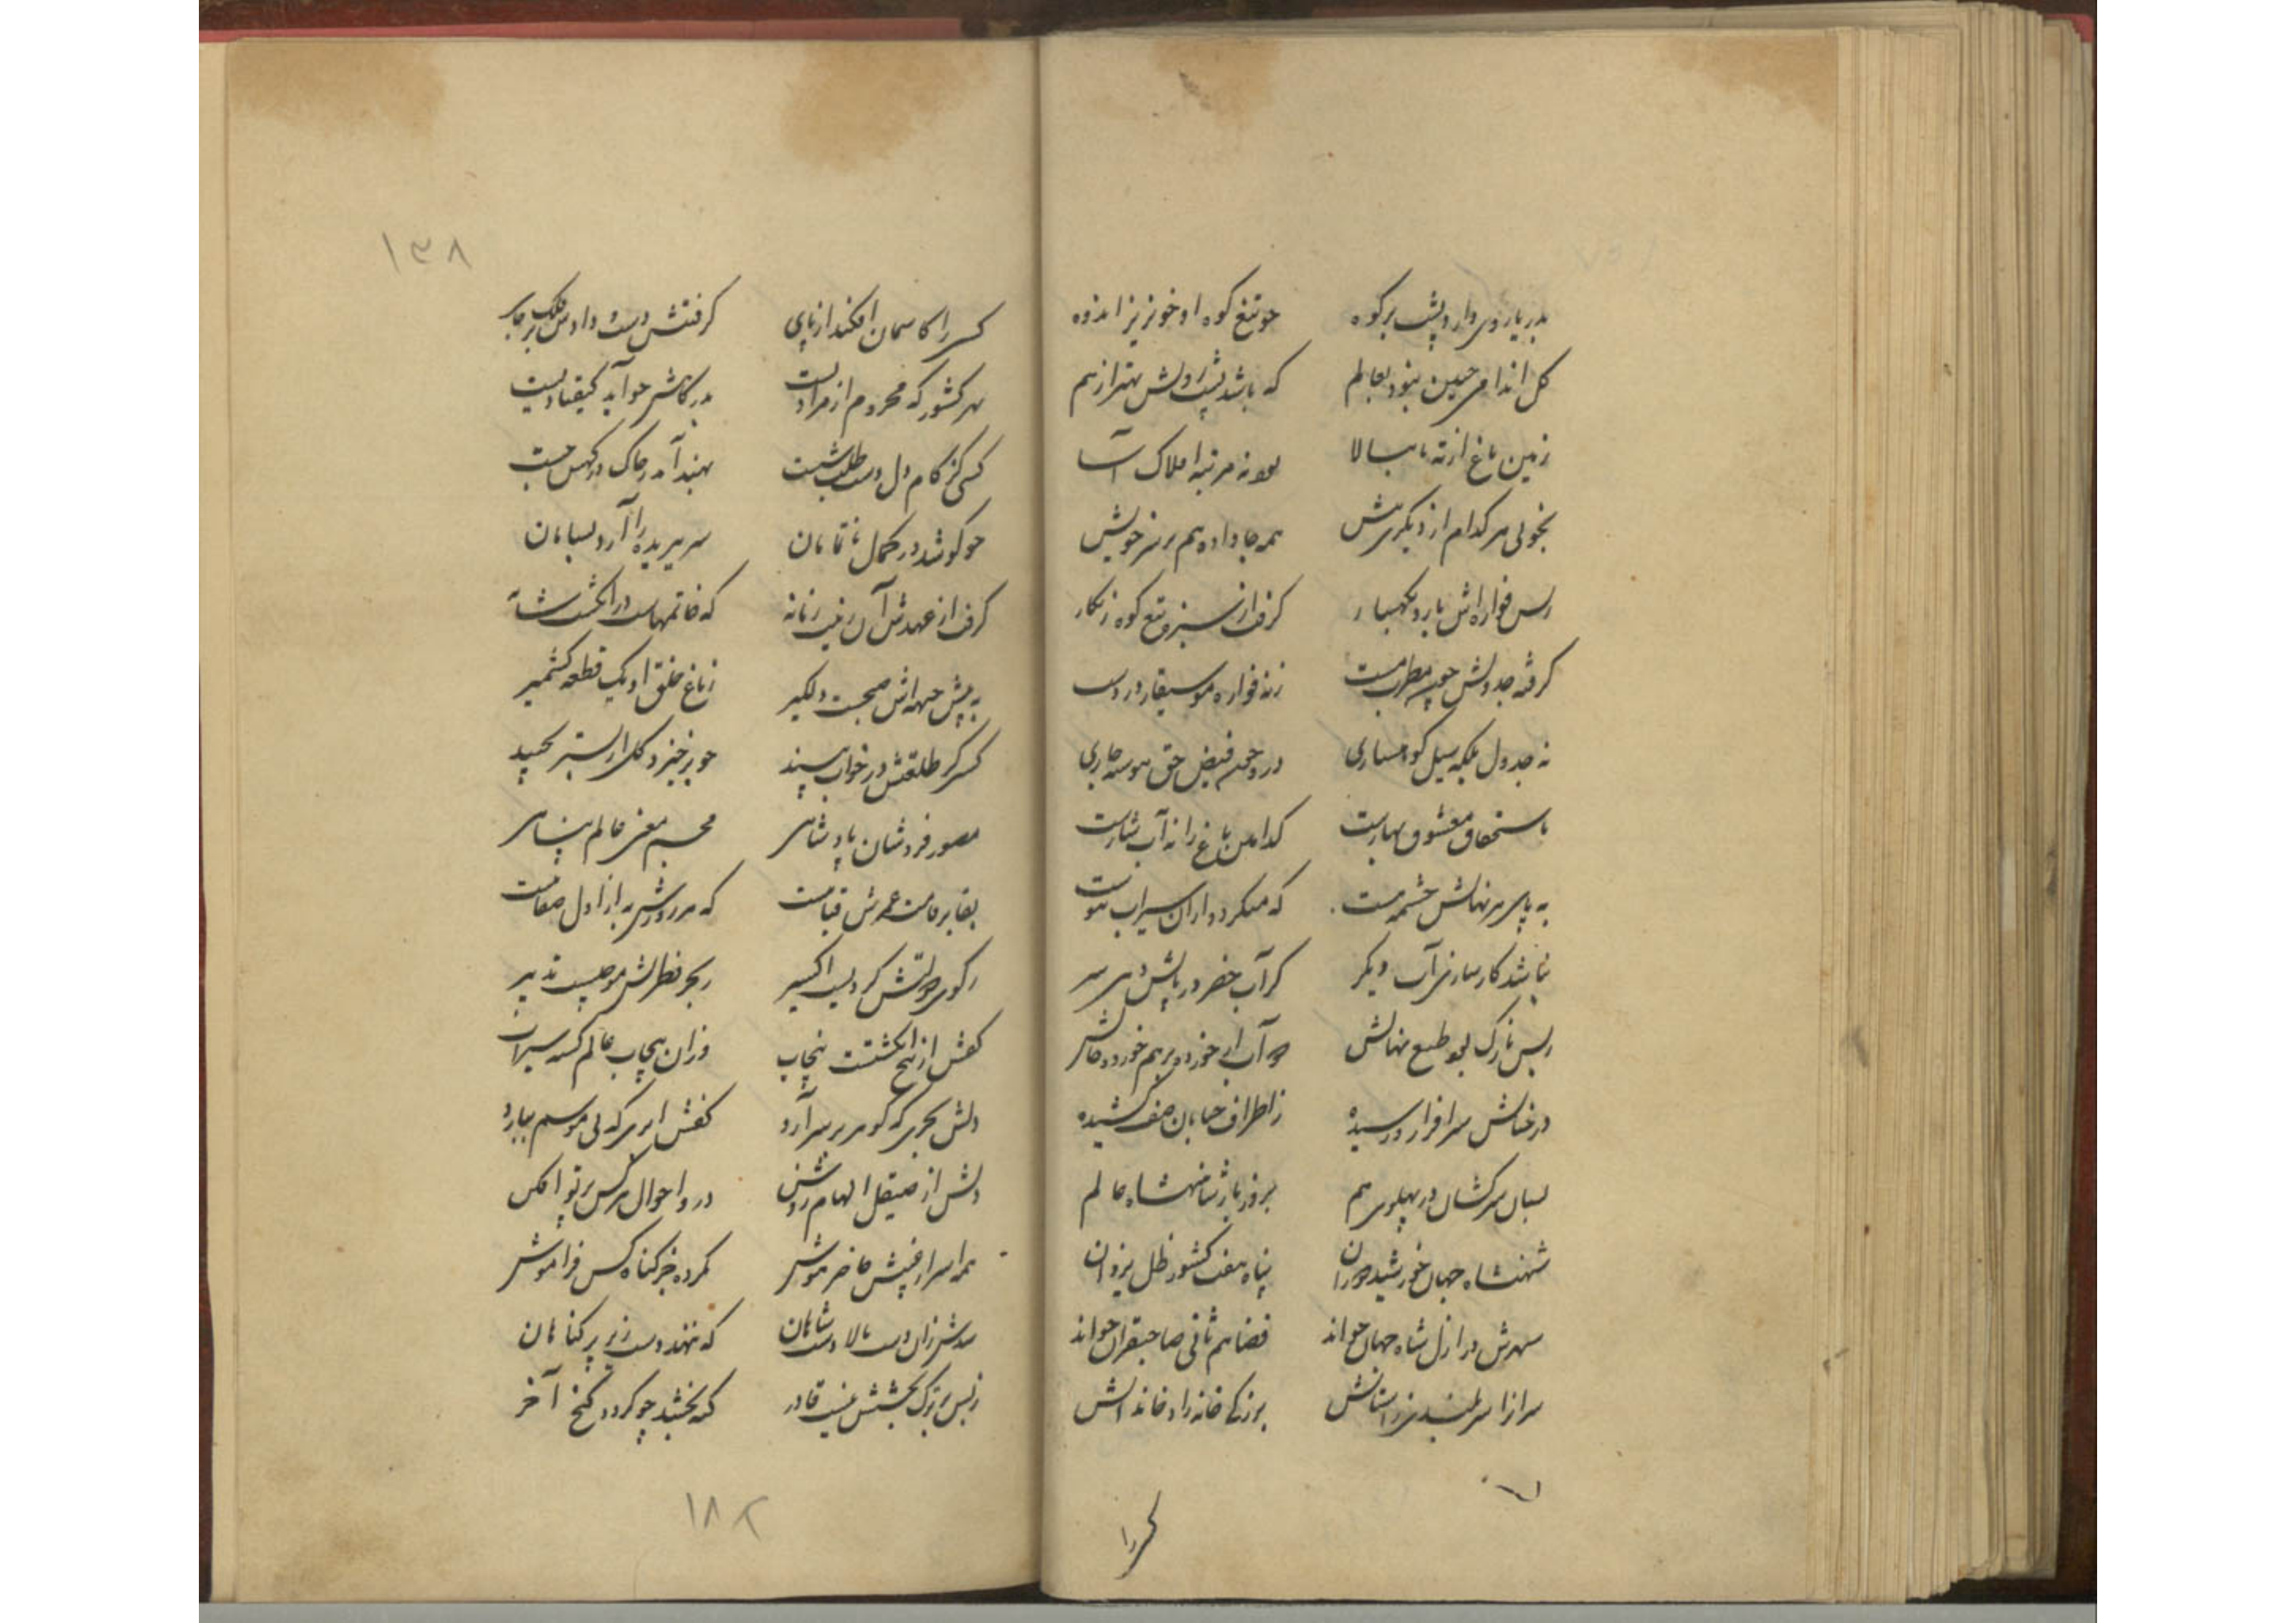 بدریا روی دارد پشت بر کوه چو تیغ کوه او خونریز اندوه
کل اندامی چنین نبود بعالم که باشد پشت و رویش بهتر از هم
زمین باغ از ته تا ببالا بود نه مرتبه افلاک آسا
بخوبی هر کدام از دیکری بیش همه جا داده هم بر سر خویش
ز بس فواره‌اش بارد بکهسار کرفت از سبزه تیغ کوه زنکار
کرفته جدولش چون مطرب مست زنه فواره موسیقار در دست
نه جدول بلکه سیل کوهساری درو چشم فیض حق پیوسته جاری
باستحقاق معشوق بهارست کدامین باغ را نه آبشارست
به پای هر نهالش چشمه هست که میکردد ازان سیراب پیوست
نباشد کارساز آب دیکر کر آب خضر در پایش دهی سر
ز بس نازک بود طبع نهالش چو آب از خورده برهم خورده حالش
درختانش سرافراز و رسیده ز اطراف خیابان صف کشیده
بسان سرکشان در پهلوی هم بروز بار شاهنشاه عالم
شهنشاه جهان خورشید دوران پناه هفت کشور ظل یزدان
سپهرش در ازل شاه جهان خواند قضا هم ثانی صاحبقران خواند
سرافرازا سربلندی ز آستانش بزرکی خانه زاد خاندانش
کسی را
۱۳۸
کسی را کاسمان افکند از پای کرفتش دست و دادش ملک بر جای
بهر کشور که محروم از مرادیست بدرکاهش چو آید کیقبادیست
کسی کز کام دل دست طلب شست بهند آمد ز خاک درکهش جست
چو کوشد در کمال ناتمامان سر ببریده را آرد بسامان
کرفت از عهدش آن زینت زمانه که خاتمهاست در انکشت شانه
به پیش جبهه‌اش صبحست دلکیر ز باغ خلق او یک قطعه کشمیر
کسی کز طلعتش در خواب بیند چو برخیزد کل از بستر بچیند
مصور فر و شان پادشاهی مجسم معنی عالم پناهی
بقا بر قامت عمرش قباست که هر روزش به از اول صفاست
ز کوی دولتش کردیست اکسیر ز بحر فطرتش موجیست تدبیر
کفش از پنج انکشتست پنجاب وزان پنجاب عالم کشته سیراب
دلش بحری که کوهر بر سر آرد کفش ابری که بی موسم ببارد
دلش از صیقل الهام روشن درو احوال هر کس پرتو افکن
همه اسرار غیبش حاضر هوش نکرده جز کناه کس فراموش
شدش زان دست بالا دست شاهان که ننهد دست رد بر بی کناهان
ز بس بر ترک بخشش نیست قادر کنه بخشد چو کردد کنج آخر
۱۸۲